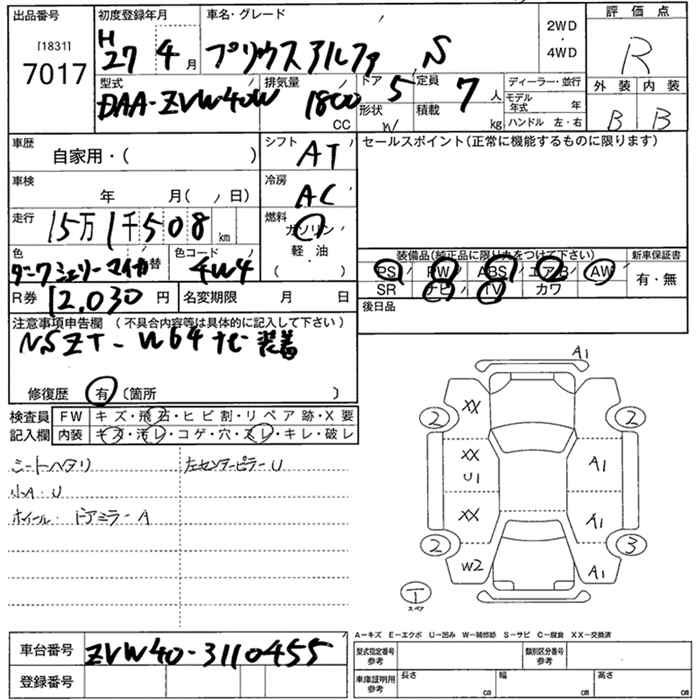 出品番号
[1831]
7017
初度登録年月
H
27 4 月
車名・グレード
プリウスアルファ S
2WD
・
4WD
評価点
R
型式
DAA-ZVW40W
排気量
1800
CC
ドア 5
形状
W
定員 7 人
積載 kg
ディーラー・並行
モデル年式 年
ハンドル 左・右
外装 内装
B B
車歴
自家用・( )
シフト
AT
セールスポイント(正常に機能するものに限ります)
車検
年 月( / 日)
冷房
AC
走行
15万1千508 km
燃料
ガソリン
軽・油
( )
色
ダークシェリーマイカ
替
色コード
4W4
装備品(純正品に限り丸をつけて下さい)
PS PW ABS エアB AW
SR ナビ TV カワ
新車保証書
有・無
R券 12,030 円
名変期限 月 日
後日品
注意事項申告欄 (不具合内容等は具体的に記入して下さい)
NSZT-W64ナビ装着
修復歴 有 (箇所 )
検査員
記入欄
FW キズ・飛石・ヒビ割・リペア跡・X要
内装 キズ・汚レ・コゲ・穴・スレ・キレ・破レ
シートヘタリ
左センターピラーU
小A・U
ホイール・ドアミラーA
A1
XX
2
2
XX
U1
A1
XX
A1
2
3
W2
A1
T
スペア
A-キズ E-エクボ U-凹み W-補修跡 S-サビ C-腐食 XX-交換済
車台番号
ZVW40-3110455
登録番号
型式指定番号
参考
類別区分番号
参考
車庫証明用
参考
長さ cm
幅 cm
高さ cm